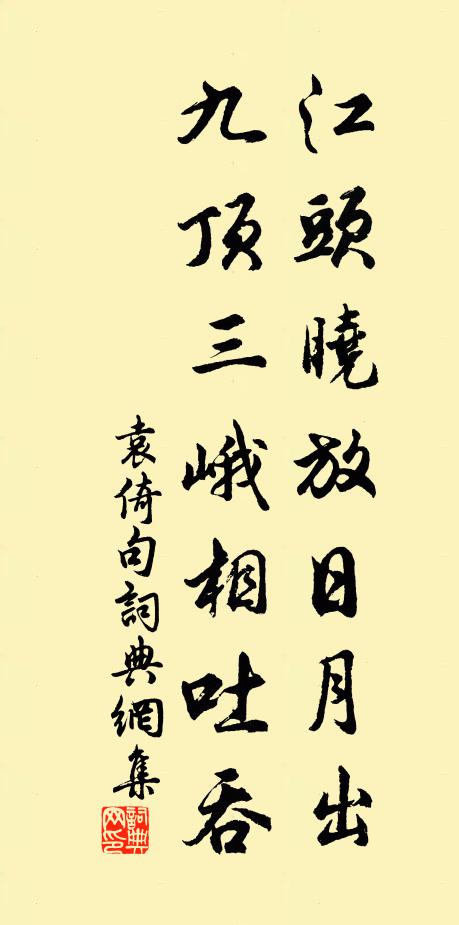 江頭曉放日月出
九頂三峨相吐吞
袁倚句詞典網集
詞典
网印